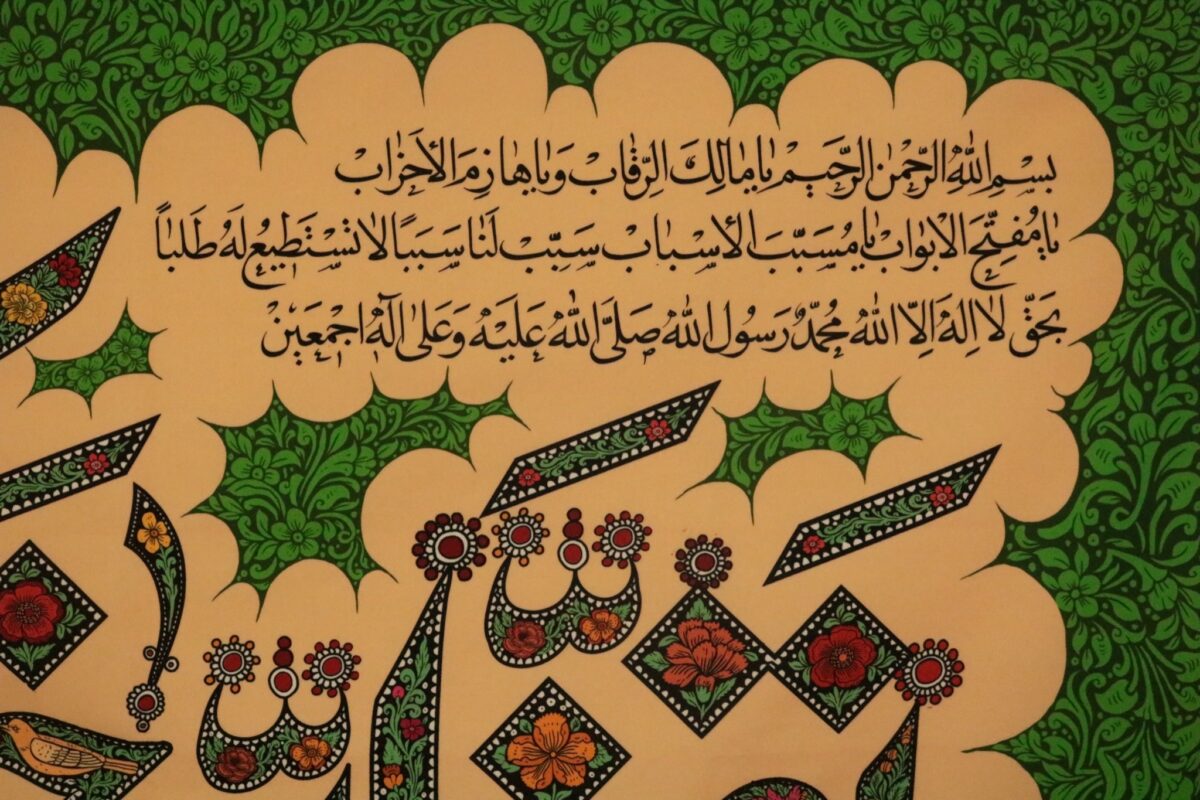 بِسْمِ اللّٰهِ الرَّحْمٰنِ الرَّحِيْمِ يَا مَالِكَ الرِّقَابْ وَيَا هَازِمَ الْأَحْزَابْ
يَا مُفَتِّحَ الْابْوَابْ يَا مُسَبِّبَ الْأَسْبَابْ سَبِّبْ لَنَا سَبَبًا لَا نَسْتَطِيْعُ لَهُ طَلَبًا
بِحَقِّ لَا اِلٰهَ اِلَّا اللّٰهُ مُحَمَّدٌ رَسُولُ اللّٰهِ صَلَّى اللّٰهُ عَلَيْهِ وَعَلٰى اٰلِهِ اجْمَعِيْنَ